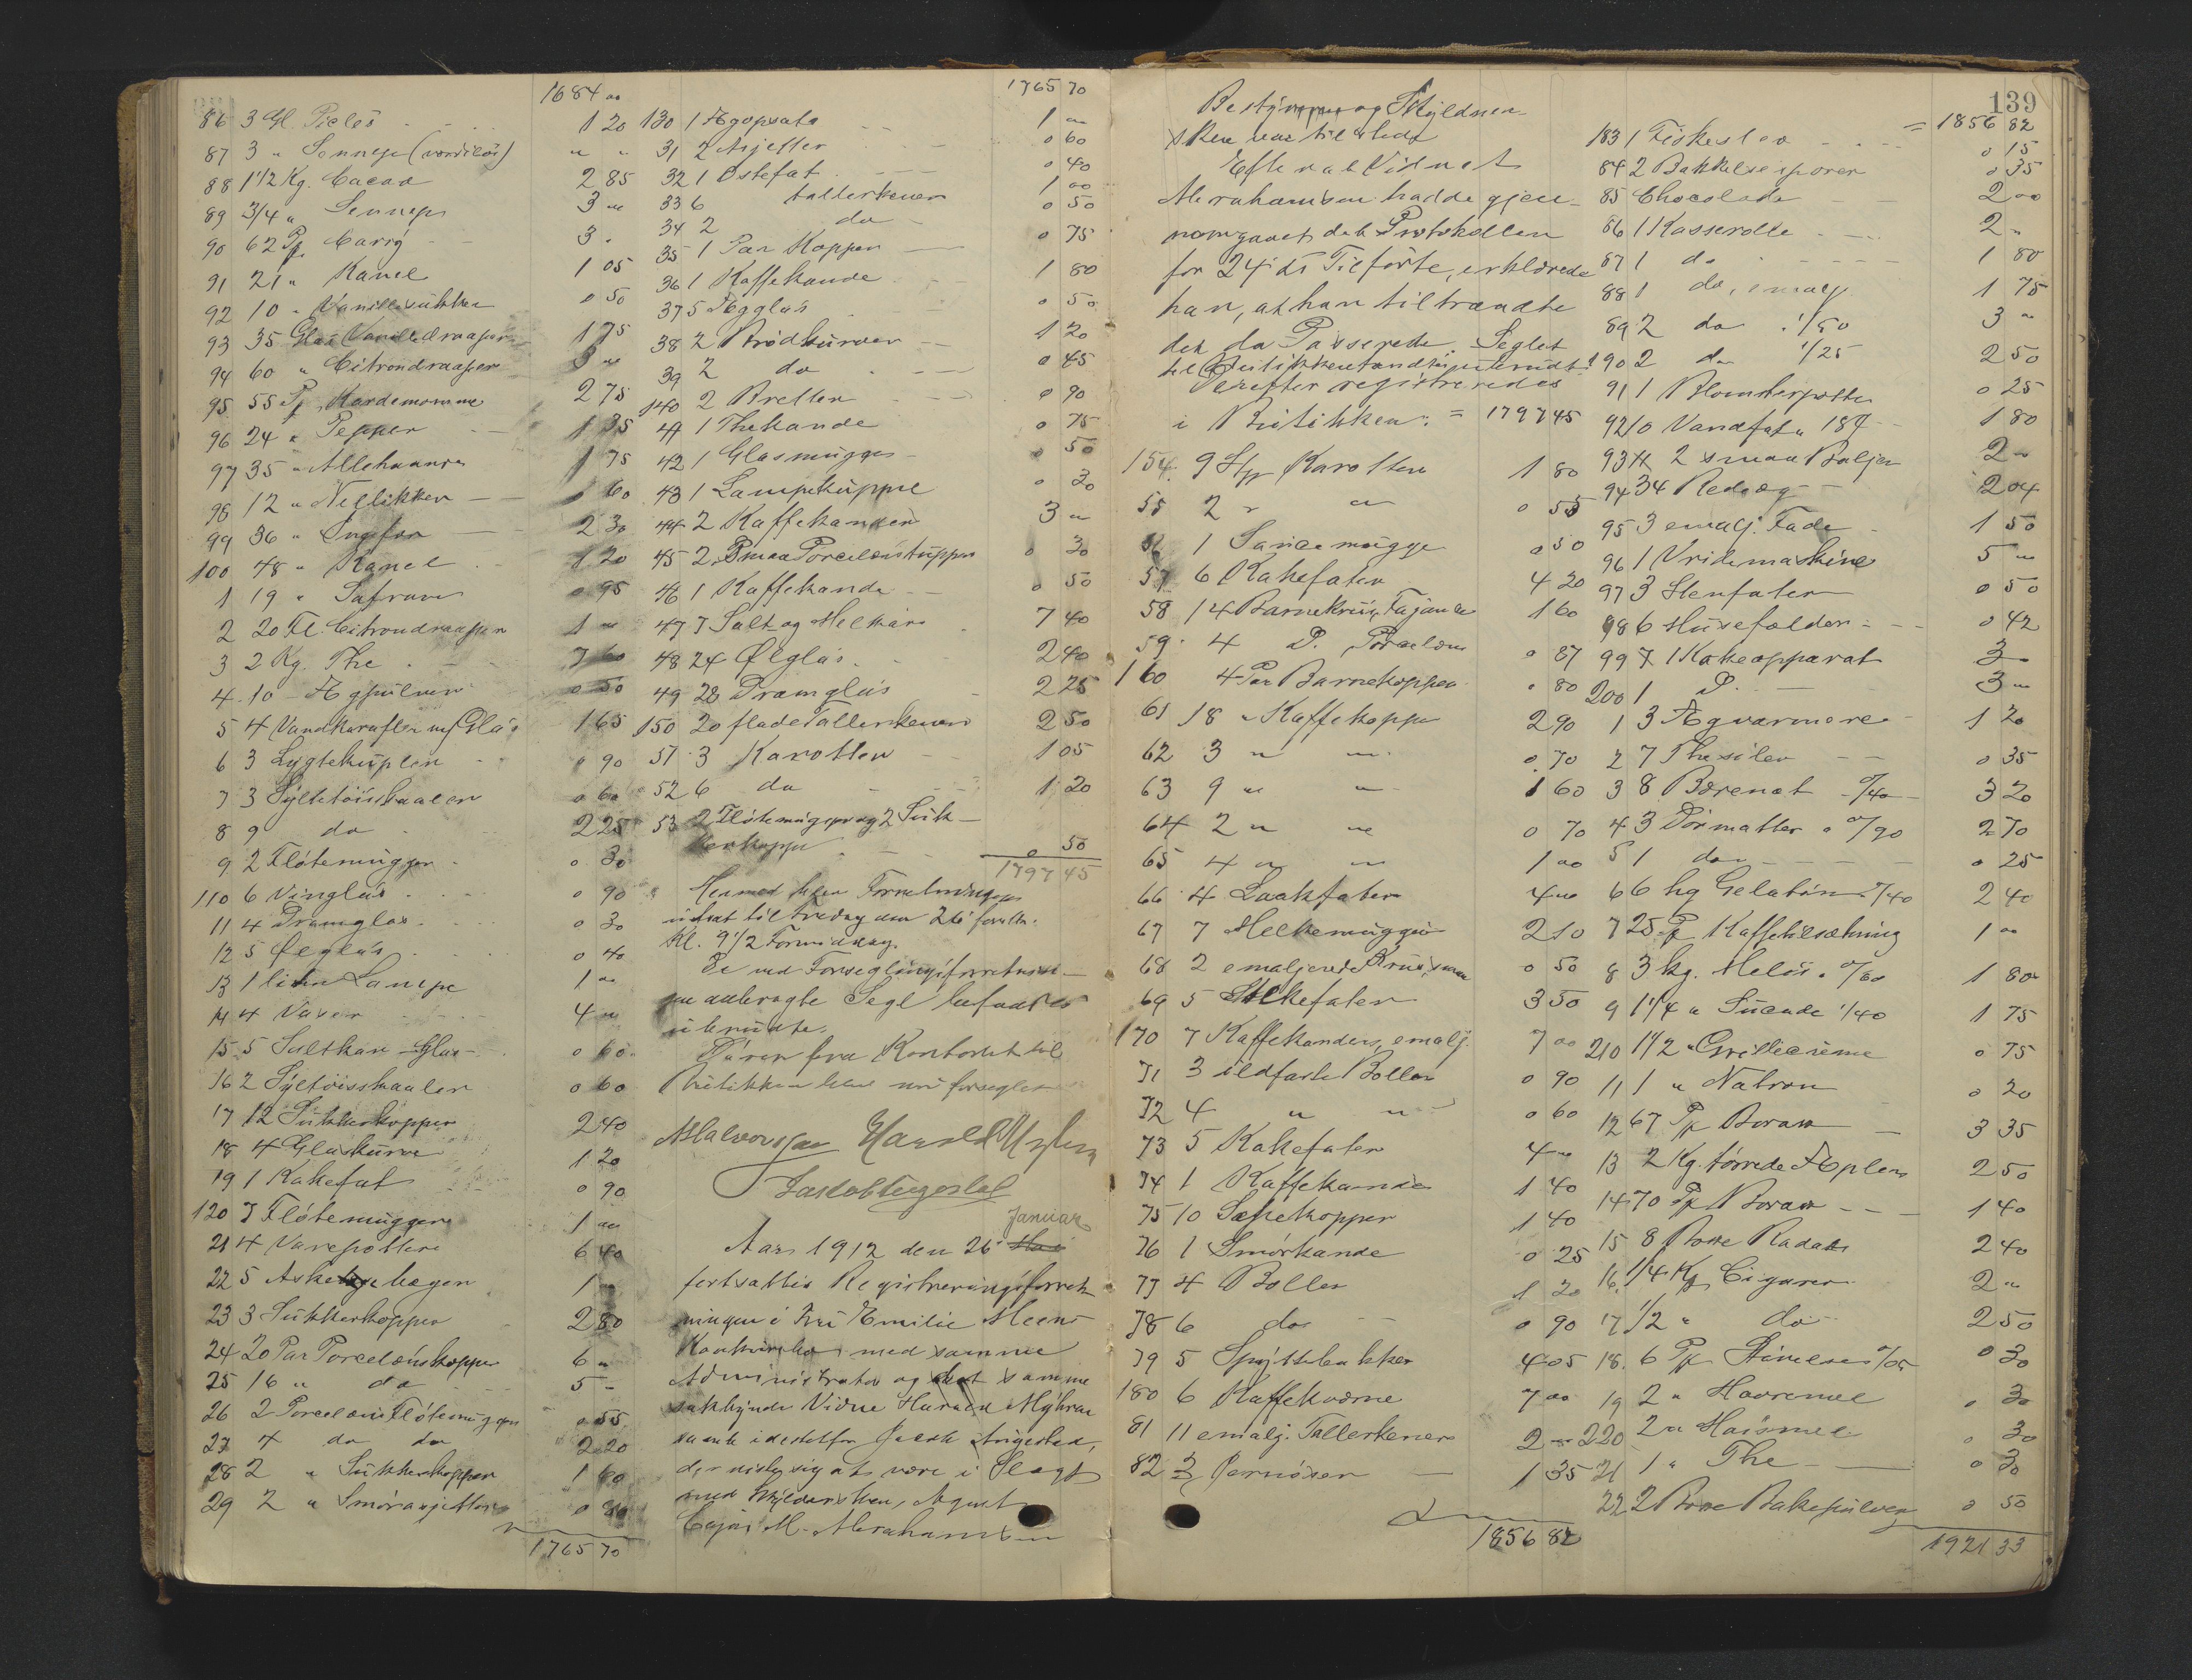 1684 "
86 3 Gl. Picles 1 20
87 3 " Sennep (værdiløs) " "
88 1 1/2 Kg. Cacao 2 85
89 3/4 " Sennep 3 "
90 62 Pk. Carry 3 "
91 21 " Kanel 1 05
92 10 " Vanillesukker 0 50
93 35 Glas Vanilledraaper 1 75
94 60 " Citrondraaper 3 "
95 55 Pk. Kardemomme 2 75
96 24 " Pepper 1 35
97 35 " Allehaande 1 75
98 12 " Nellikker 60
99 36 " Ingefær 2 30
100 48 " Kanel 1 20
1 19 " Safran 0 95
2 20 Fl. Citrondraaper 1 "
3 2 Kg. The 7 60
4 10 Ægpulver 0 50
5 4 Vandkarafler m/ Glas 1 65
6 3 Lygtekupler 0 90
7 3 Syltetøisskaaler 0 60
8 9 do 2 25
9 2 Fløtemugger 0 30
110 6 Vinglas 0 90
11 4 Dramglas 0 30
12 5 Ølglas 0 40
13 1 liten Lampe 1 "
14 4 Vaser 4 "
15 5 Saltkar Glas 0 60
16 2 Syltøisskaaler 0 60
17 12 Sukkerkopper 2 40
18 4 Glaskurve 1 20
19 1 Kakefat 0 90
120 7 Fløtemugger 1 "
21 4 Vareposter 6 40
22 5 Askebægere 1 "
23 3 Sukkerkopper 2 80
24 20 Par Porcelænskopper 6 "
25 16 " do 5 "
26 2 Porcelæns Fløtemugger 0 55
27 4 do do 2 20
28 2 " Sukkerkopper 1 60
29 2 " Smørasjetter 0 80
1765 70
1765 70
130 1 Ægopsats 1 "
31 2 Asjetter 0 60
32 1 Ostefat 0 40
33 6 tallerkener 1 00
34 2 do 0 50
35 1 Par Kopper 0 75
36 1 Kaffekande 1 80
37 5 Ægglas 0 50
38 2 Brødkurver 1 20
39 2 do 0 45
140 2 Bretter 0 90
41 1 Thekande 0 75
42 1 Glasmugge 0 50
43 1 Lampekuppel 0 30
44 2 Kaffekander 3 "
45 2 Smaa Porcelænskupper 0 30
46 1 Kaffekande 0 50
47 7 Salt og Melkar 7 40
48 24 Ølglas 2 40
49 28 Dramglas 2 25
150 20 flade Tallerkener 2 50
51 3 Karotter 1 05
52 6 do 1 20
53 2 Fløtemugger og 2 Suk-
kerkopper 0 50
1797 45
Hermed blev Forretningen
utsat til Fredag den 26'
Kl. 9 1/2 Formiddag.
De ved Forseglingsforretnin-
gen anbragte Segl befandtes
ubrudte.
Døren fra Kontoret til
Butikken blev nu forseglet
Halvorsen Harald Myhren
Jakob Tugestad
Januar
Aar 1912 den 26' Mai
fortsattes Registreringsforret-
ningen i Fru Emilie Meens
Konkursbo med samme
Administrator og samme
sakkyndige Vidne Harald Myhren
samt istedetfor Jacob Tugestad,
der viste sig at være i Slegt
med Skyldnersken, Agent
Cajus M. Abrahamsen
139
Bestyreren og Skyldner-
sken var tilstede
Efter at Vidnet
Abrahamsen hadde gjen-
nemgaaet det Protokollen
for 24' ds Tilførte, erklærede
han, at han tiltraadte
det da Passerede. Seglet
til Butikken fandtes ubrudt.
Derefter registreredes
i Butikken: = 1797 45
154 9 Stk Karotter 1 80
55 2 " " 0 55
56 1 Saucemugge 0 50
57 6 Kakefater 4 20
58 14 Barnekrus, Fajance 1 60
59 4 D. Porcelæn 0 87
160 4 Par Barnekopper 0 80
61 18 " Kaffekopper 2 90
62 3 " " 0 70
63 9 " " 1 60
64 2 " " 0 70
65 4 " " 1 00
66 4 Laakfater 4 "
67 7 Melkemugger 2 10
68 2 emaljerede Krus, smaa 0 50
69 5 Stekefater 3 50
170 7 Kaffekander, emalj. 7 00
71 3 ildfaste Boller 0 90
72 4 " " 0 60
73 5 Kakefater 4 "
74 1 Kaffekande 1 40
75 10 Sæpekopper 1 40
76 1 Smørkande 0 25
77 4 Boller 1 20
78 6 do 0 90
79 5 Spyttebakker 4 05
180 6 Kaffekværne 7 00
81 11 emalj. Tallerkener 2 "
82 3 Jernøser 1 35
1856 82
= 1856 82
183 1 Fiskeslev 0 15
84 2 Bakkelsesporer 0 35
85 Chocolade 2 00
86 1 Kasserolle 2 "
87 1 do 1 80
88 1 do, emalj 1 75
89 2 do 1/50 3 "
190 2 do 1/25 2 50
91 1 Blomsterpotte 0 25
92 10 Vandfat " 18 1 80
93 2 smaa Baljer 2 "
94 34 Redeæg 2 04
95 3 emalj. Fade 1 50
96 1 Vridemaskine 5 "
97 3 Stenfater 0 50
98 6 Musefælder 0 42
99 1 Kakeapparat 3 "
200 1 D. 3 "
1 3 Ægvarmere 1 20
2 7 Thesiler 0 35
3 8 Bærenet 0/40 3 20
4 3 Dørmatter 0/90 2 70
5 1 do 0 25
6 6 hg Gelatin 0/40 2 40
7 25 Pk Kaffetilsætning 1 00
8 3 kg. Melis 0/60 1 80
9 1 1/4 " Sucade 1/40 1 75
210 1 1/2 " Grillecreme 0 75
11 1 " Natron 0 20
12 67 Pk Borax 3 35
13 2 Kg. tørrede Æpler 2 50
14 70 Pk Borax 1 40
15 8 Bøsse Radals 2 40
16 1/4 Ks Cigarer 2 "
17 1/2 " do 2 50
18 6 Pk Stivelse 0/05 0 30
19 2 " Havremel 0 30
220 2 " Maismel 0 30
21 1 " The 0 30
22 2 Bøsse Bakepulver 0 50
1921 33